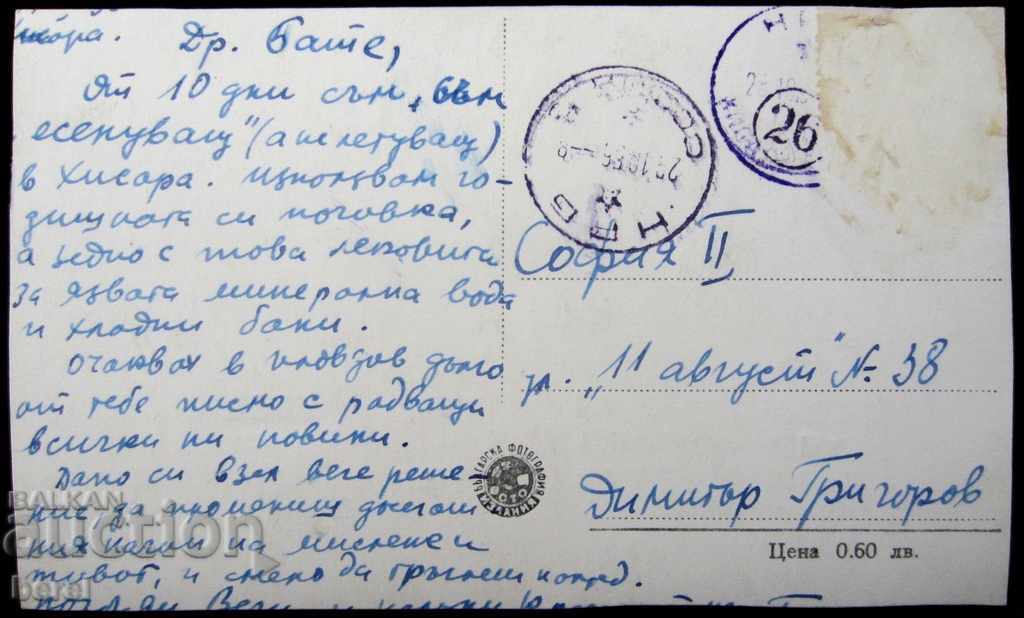 Др. Бате,
От 10 дни съм „съм
есенуващ" (а не летуващ)
в Хисара. Използвам го-
дишната си почивка,
а заедно с това лековита
за язвата минерална вода
и хладни бани.
Очаквах в Пловдив дълго
от тебе писмо с радващи
всички ни новини.
Дано си взел вече реше-
ние да промениш досегаш
ния начин на мислене и
живот, и смело да тръгнеш напред.
София II
ул. „11 август" № 38
Димитър Григоров
Цена 0.60 лв.
БЪЛГАРСКА ФОТОГРАФИЯ
26
BALKAN
auction
berel